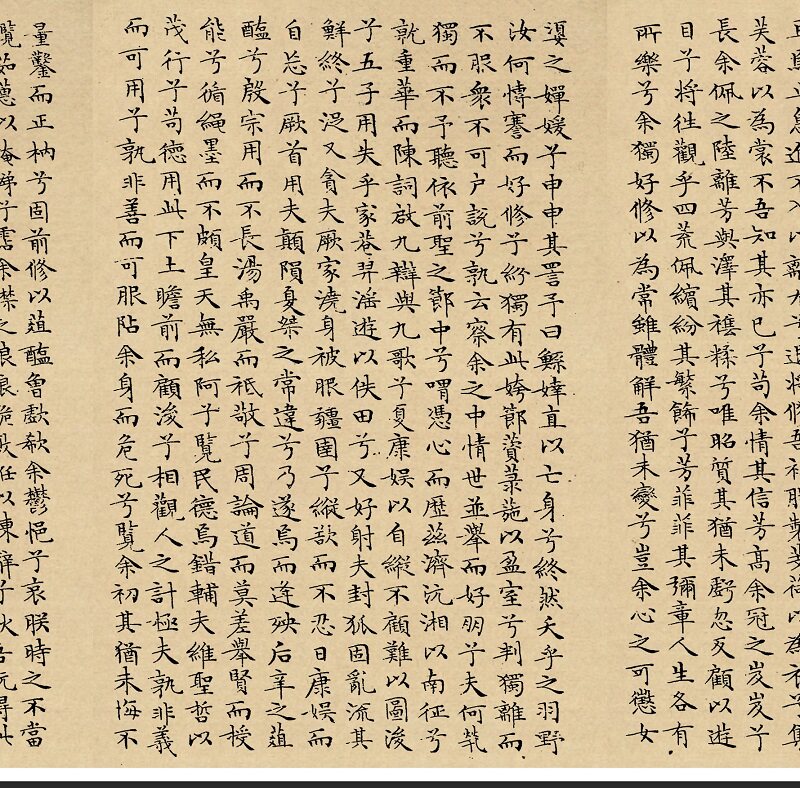 焉止息進不入以離尤兮退將修吾初服製芰荷以為衣兮集
芙蓉以為裳不吾知其亦已兮苟余情其信芳高余冠之岌岌兮
長余佩之陸離芳與澤其雜糅兮唯昭質其猶未虧忽反顧以遊
目兮將往觀乎四荒佩繽紛其繁飾兮芳菲菲其彌章人生各有
所樂兮余獨好修以為常雖體解吾猶未變兮豈余心之可懲女
媭之嬋媛兮申申其詈予曰鯀婞直以亡身兮終然夭乎之羽野
汝何博謇而好修兮紛獨有此姱節薋菉葹以盈室兮判獨離而
不服衆不可户說兮孰云察余之中情世並舉而好朋兮夫何煢
獨而不予聽依前聖之節中兮喟憑心而歷茲濟沅湘以南征兮
就重華而陳詞啟九辯與九歌兮夏康娛以自縱不顧難以圖後
兮五子用失乎家巷羿淫遊以佚田兮又好射夫封狐固亂流其
鮮終兮浞又貪夫厥家澆身被服彊圉兮縱欲而不忍日康娛而
自忘兮厥首用夫顛隕夏桀之常違兮乃遂焉而逢殃后辛之菹
醢兮殷宗用而不長湯禹嚴而祗敬兮周論道而莫差舉賢而授
能兮循繩墨而不頗皇天無私阿兮覽民德焉錯輔夫維聖哲以
茂行兮苟德用此下土瞻前而顧後兮相觀人之計極夫孰非義
而可用兮孰非善而可服阽余身而危死兮覽余初其猶未悔不
量鑿而正枘兮固前修以菹醢曾歔欷余鬱悒兮哀朕時之不當
攬茹蕙以掩涕兮霑余襟之浪浪跪敷衽以陳辭兮耿吾既得此